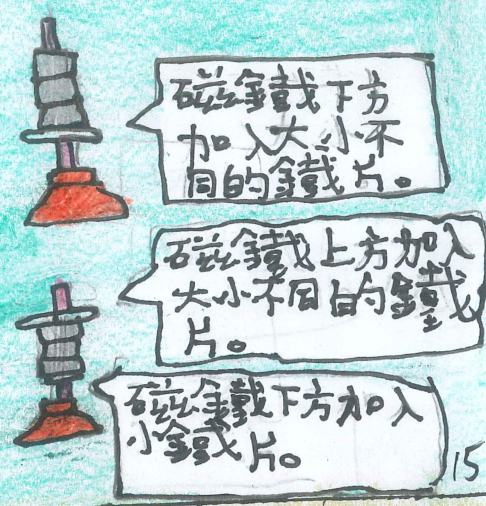 磁鐵下方
加入大小不
同的鐵片。
磁鐵上方加入
大小不同的鐵
片。
磁鐵下方加入
小鐵片。
15